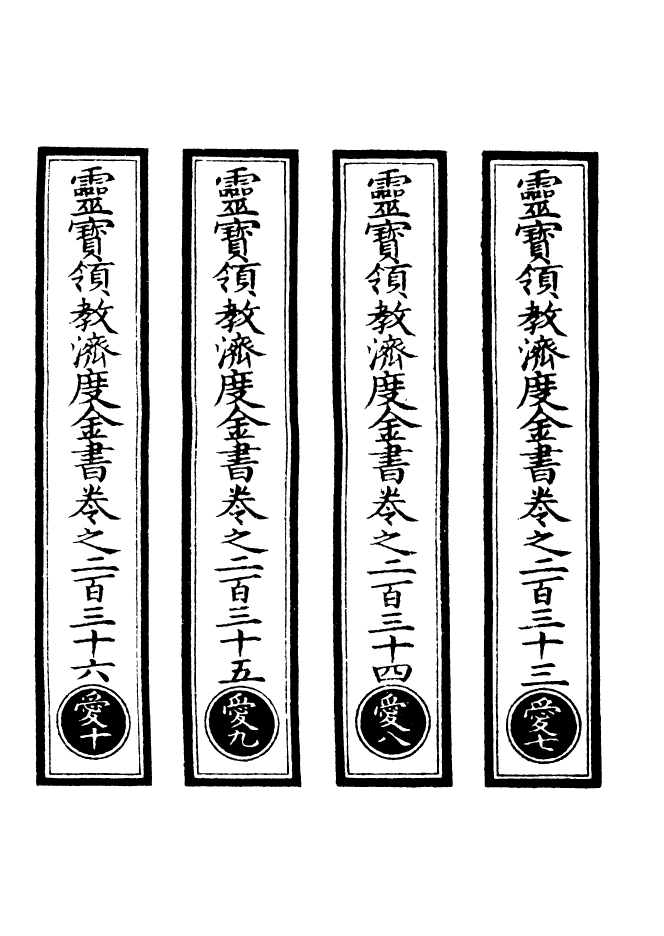 靈寶領教濟度金書卷之二百三十三
愛七
靈寶領教濟度金書卷之二百三十四
愛八
靈寶領教濟度金書卷之二百三十五
愛九
靈寶領教濟度金書卷之二百三十六
愛十